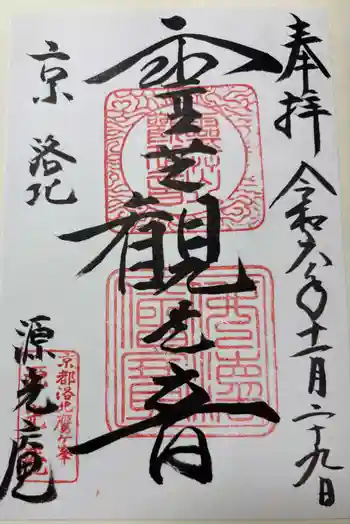 奉拝 令和六年十一月二十九日
霊芝観世音
京 洛北
源光庵
京都洛北鷹ヶ峯